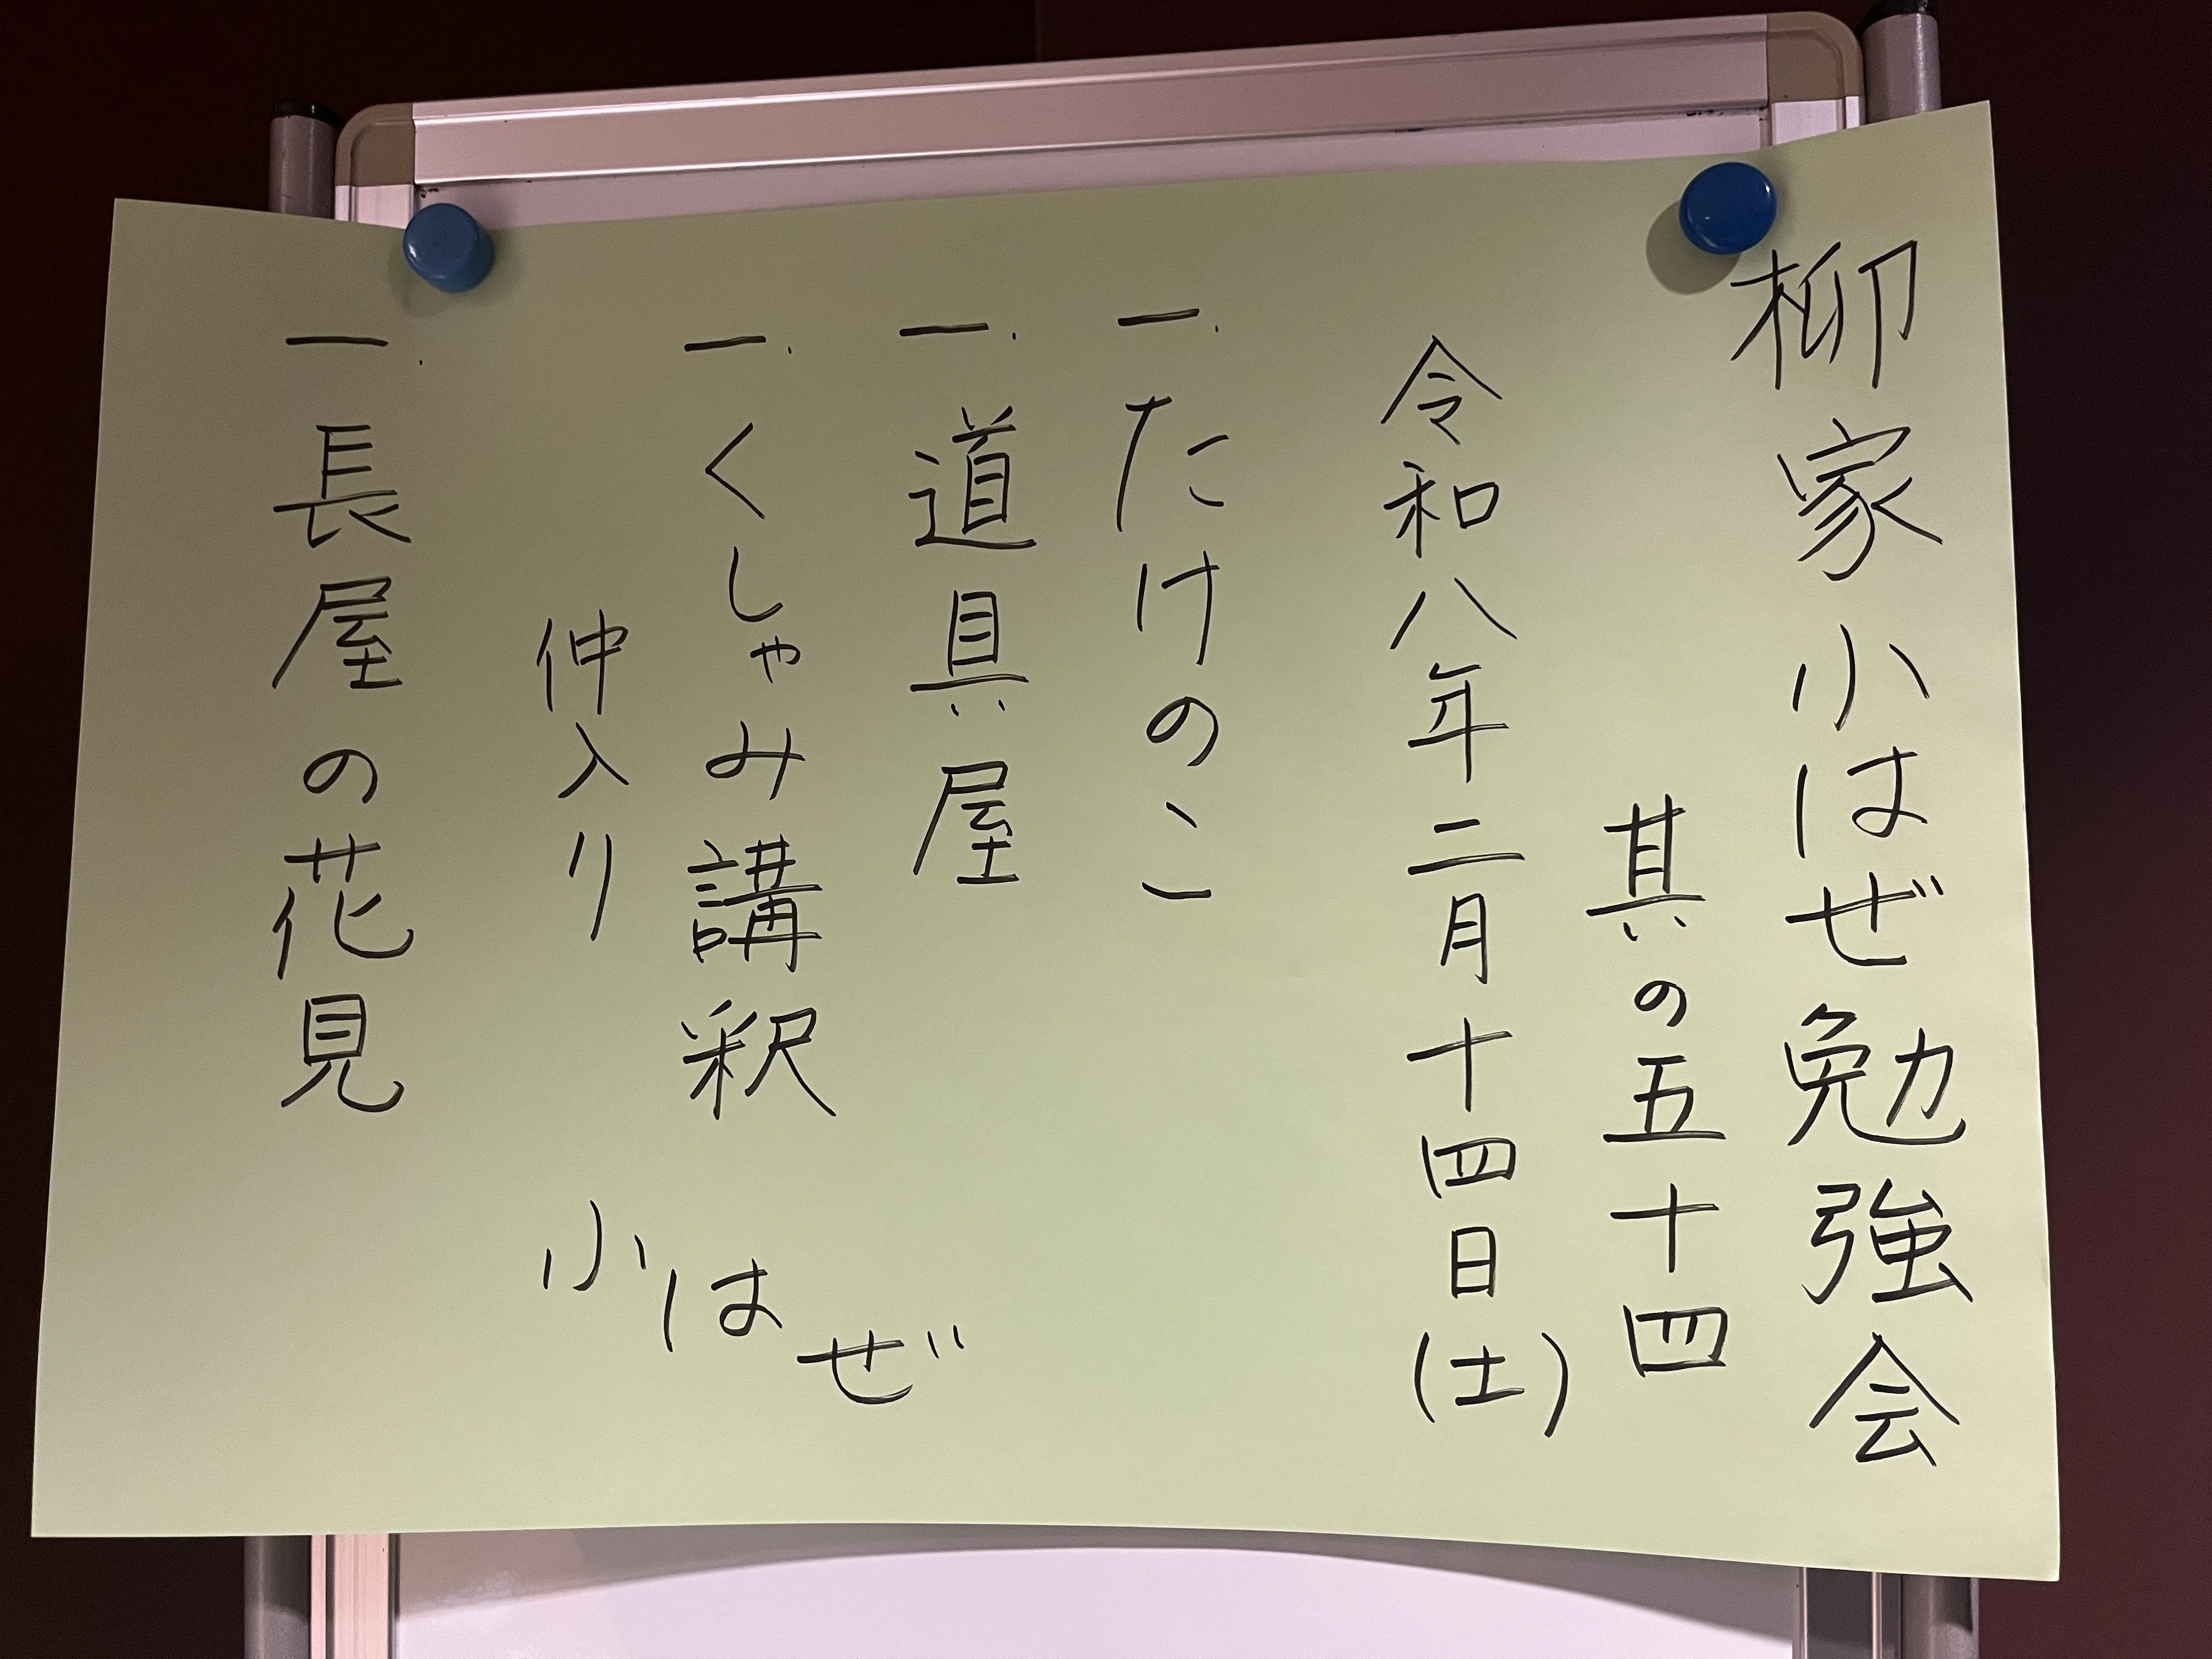 柳家小はぜ勉強会
其の五十四
令和八年二月十四日(土)
一.たけのこ
一.道具屋
一.くしゃみ講釈
仲入り
一.長屋の花見
小はぜ